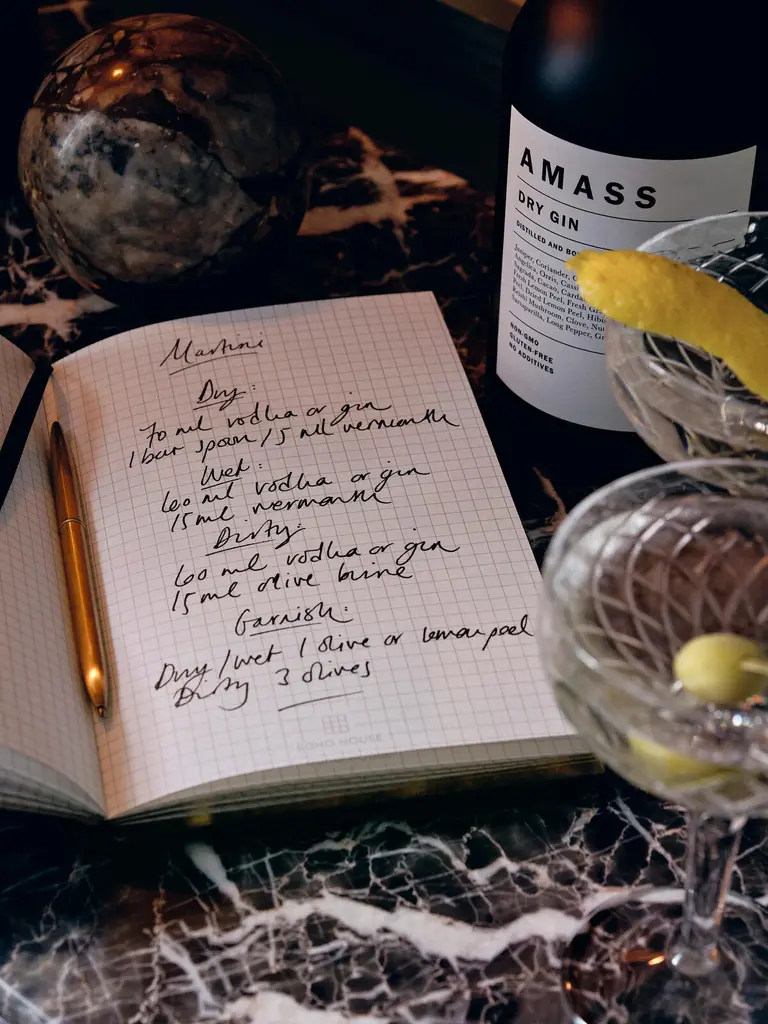 Martini
Dry:
70 ml vodka or gin
1 bar spoon / 5 ml vermouth
Wet:
60 ml vodka or gin
15 ml vermouth
Dirty:
60 ml vodka or gin
15 ml olive brine
Garnish:
Dry / wet 1 olive or lemon peel
Dirty 3 olives
SOHO HOUSE
AMASS
DRY GIN
DISTILLED AND
Juniper, Coriander,
Angelica, Orris,
Cacao,
Fresh Lemon Peel, Fresh
Peel, Dried Lemon Peel,
Mushroom, Clove,
Sarsaparilla, Long Pepper,
NON-GMO
GLUTEN-FREE
NO ADDITIVES